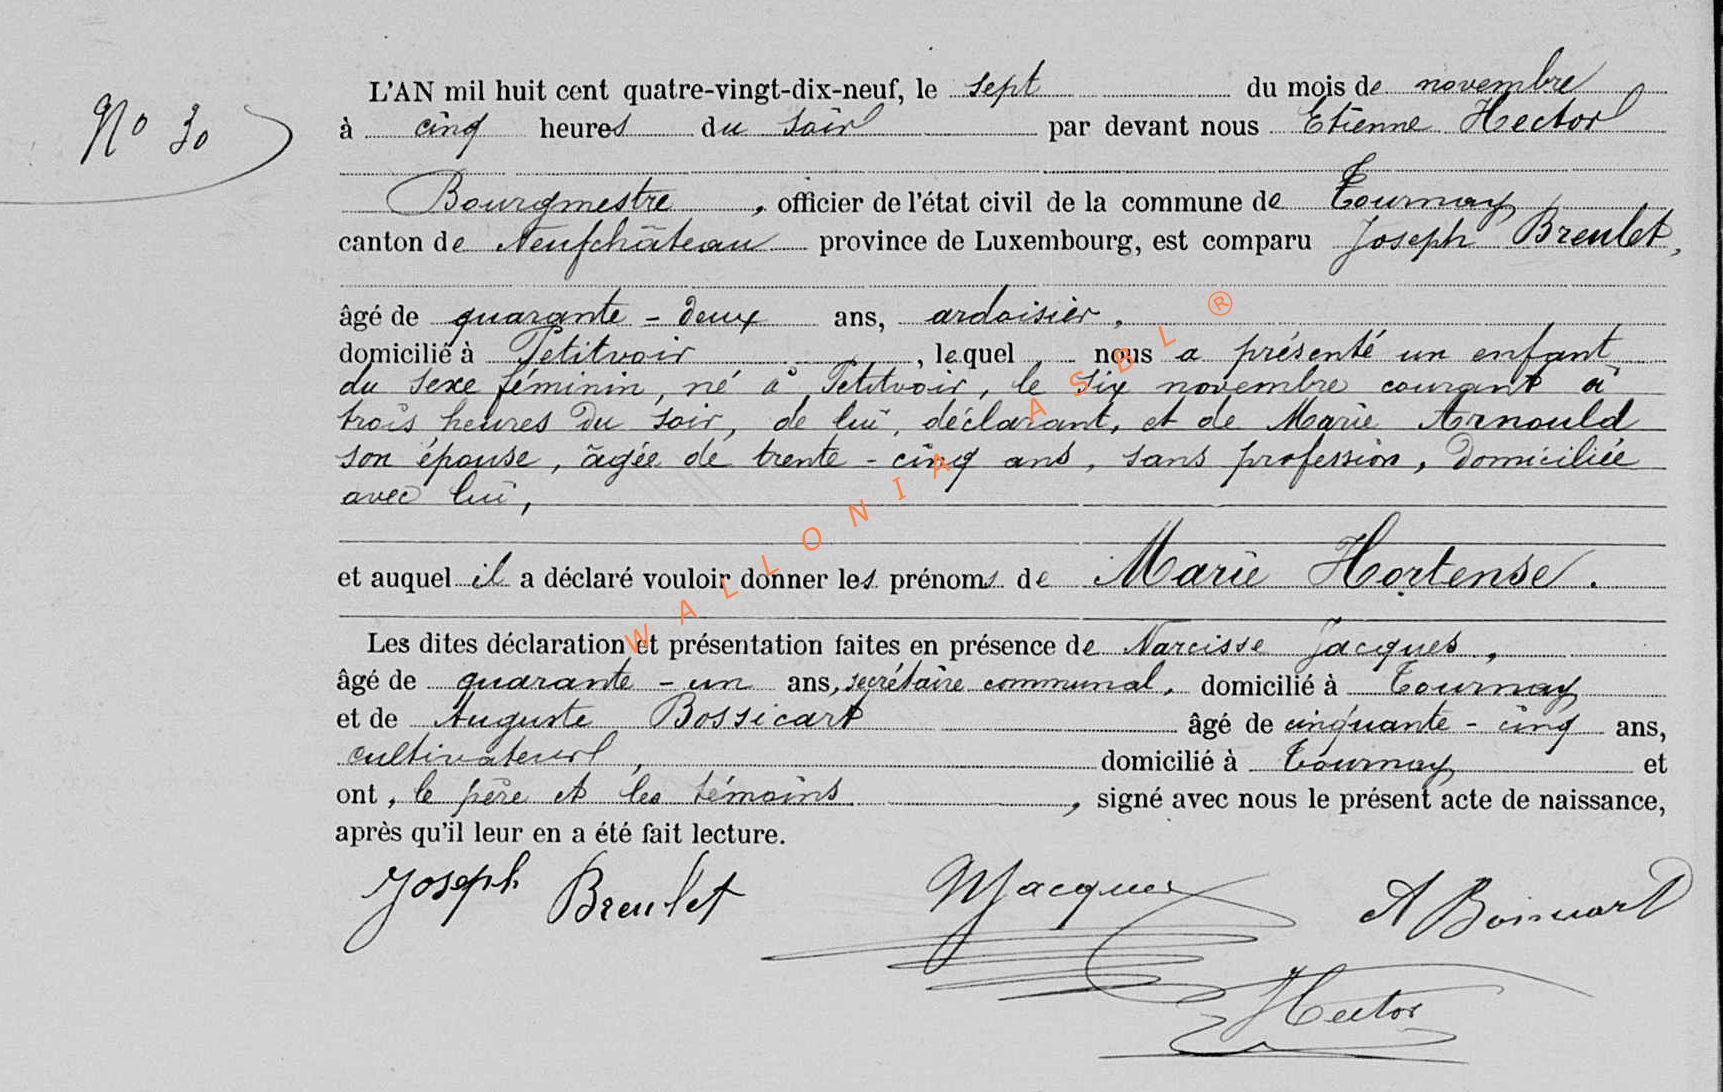 No 30
L'AN mil huit cent quatre-vingt-dix-neuf, le sept du mois de novembre
à cinq heures du soir par devant nous Etienne Hector
Bourgmestre, officier de l'état civil de la commune de Tournay,
canton de Neufchâteau province de Luxembourg, est comparu Joseph Breulet,
âgé de quarante-deux ans, ardoisier,
domicilié à Petitvoir, lequel nous a présenté un enfant
du sexe féminin, né à Petitvoir, le six novembre courant à
trois heures du soir, de lui, déclarant, et de Marie Arnould
son épouse, âgée de trente-cinq ans, sans profession, domiciliée
avec lui,
et auquel il a déclaré vouloir donner les prénoms de Marie Hortense.
Les dites déclaration et présentation faites en présence de Narcisse Jacques,
âgé de quarante-un ans, secrétaire communal, domicilié à Tournay
et de Auguste Bossicart âgé de cinquante-cinq ans,
cultivateur, domicilié à Tournay et
ont, le père et les témoins, signé avec nous le présent acte de naissance,
après qu'il leur en a été fait lecture.
Joseph Breulet NJacques A Bossicart
Hector
WALLONIA ASBL ®